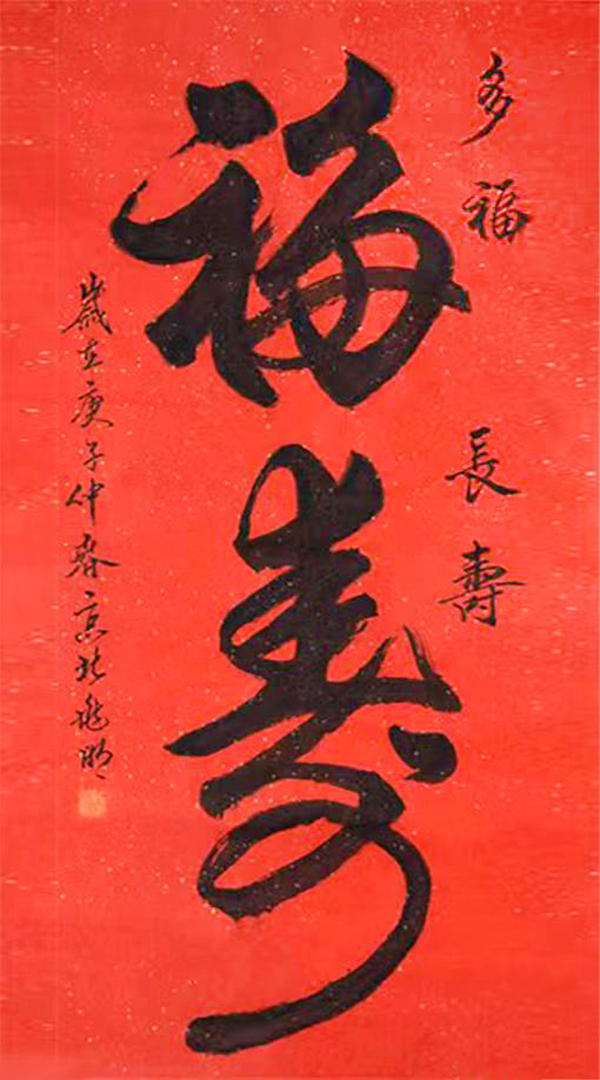 多福 長壽
福壽
歲在庚子仲春京北